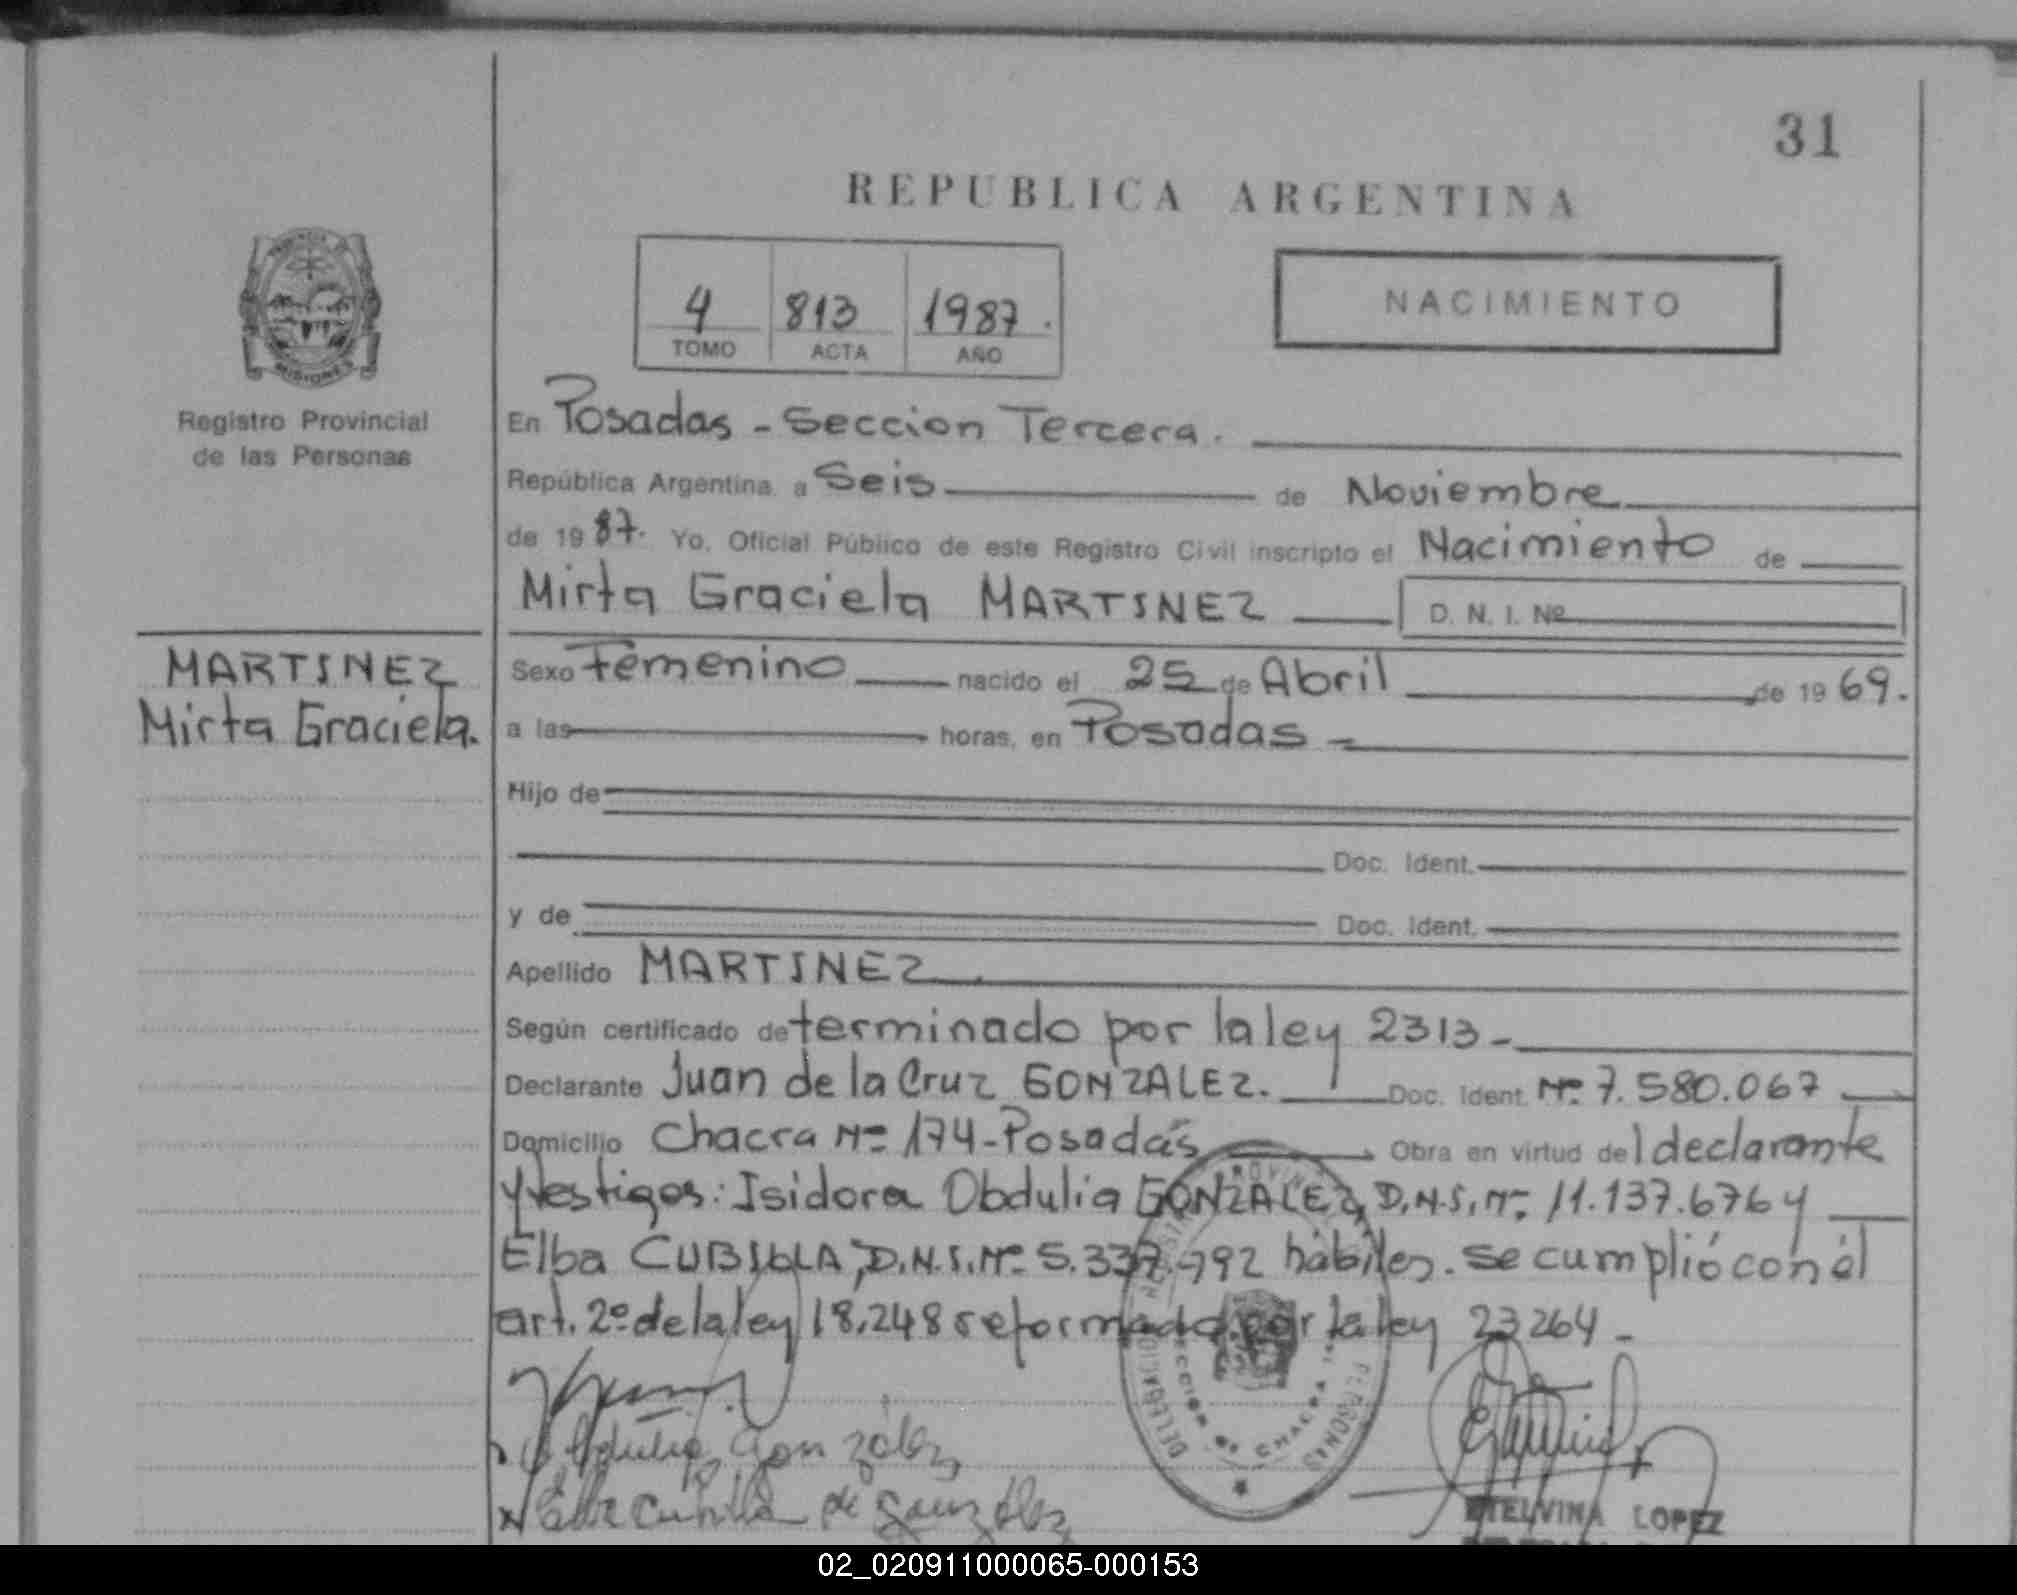 31
REPUBLICA ARGENTINA
4 813 1987.
TOMO ACTA AÑO
NACIMIENTO
MISIONES
Registro Provincial
de las Personas
En Posadas - Seccion Tercera.
República Argentina a Seis de Noviembre
de 1987. Yo, Oficial Público de este Registro Civil inscripto el Nacimiento de
Mirta Graciela MARTINEZ D. N. I. Nº
MARTINEZ
Mirta Graciela.
Sexo Femenino nacido el 25 de Abril de 1969.
a las horas, en Posadas -
Hijo de
Doc. Ident.
y de Doc. Ident.
Apellido MARTINEZ
Según certificado determinado por la ley 2313 -
Declarante Juan de la Cruz GONZALEZ. Doc. Ident. Nº 7.580.067
Domicilio Chacra Nº 174-Posadas Obra en virtud del declarante
y testigos: Isidora Obdulia GONZALEZ, D.N.I. Nº 11.137.676 y
Elba CUBILLA, D.N.I. Nº 5.337.792 hábiles. Se cumplió con el
art. 2º de la ley 18.248 reformado por la ley 23264 -
Obdulia González
Elba Cubilla de González
ETELVINA LOPEZ
02_020911000065-000153